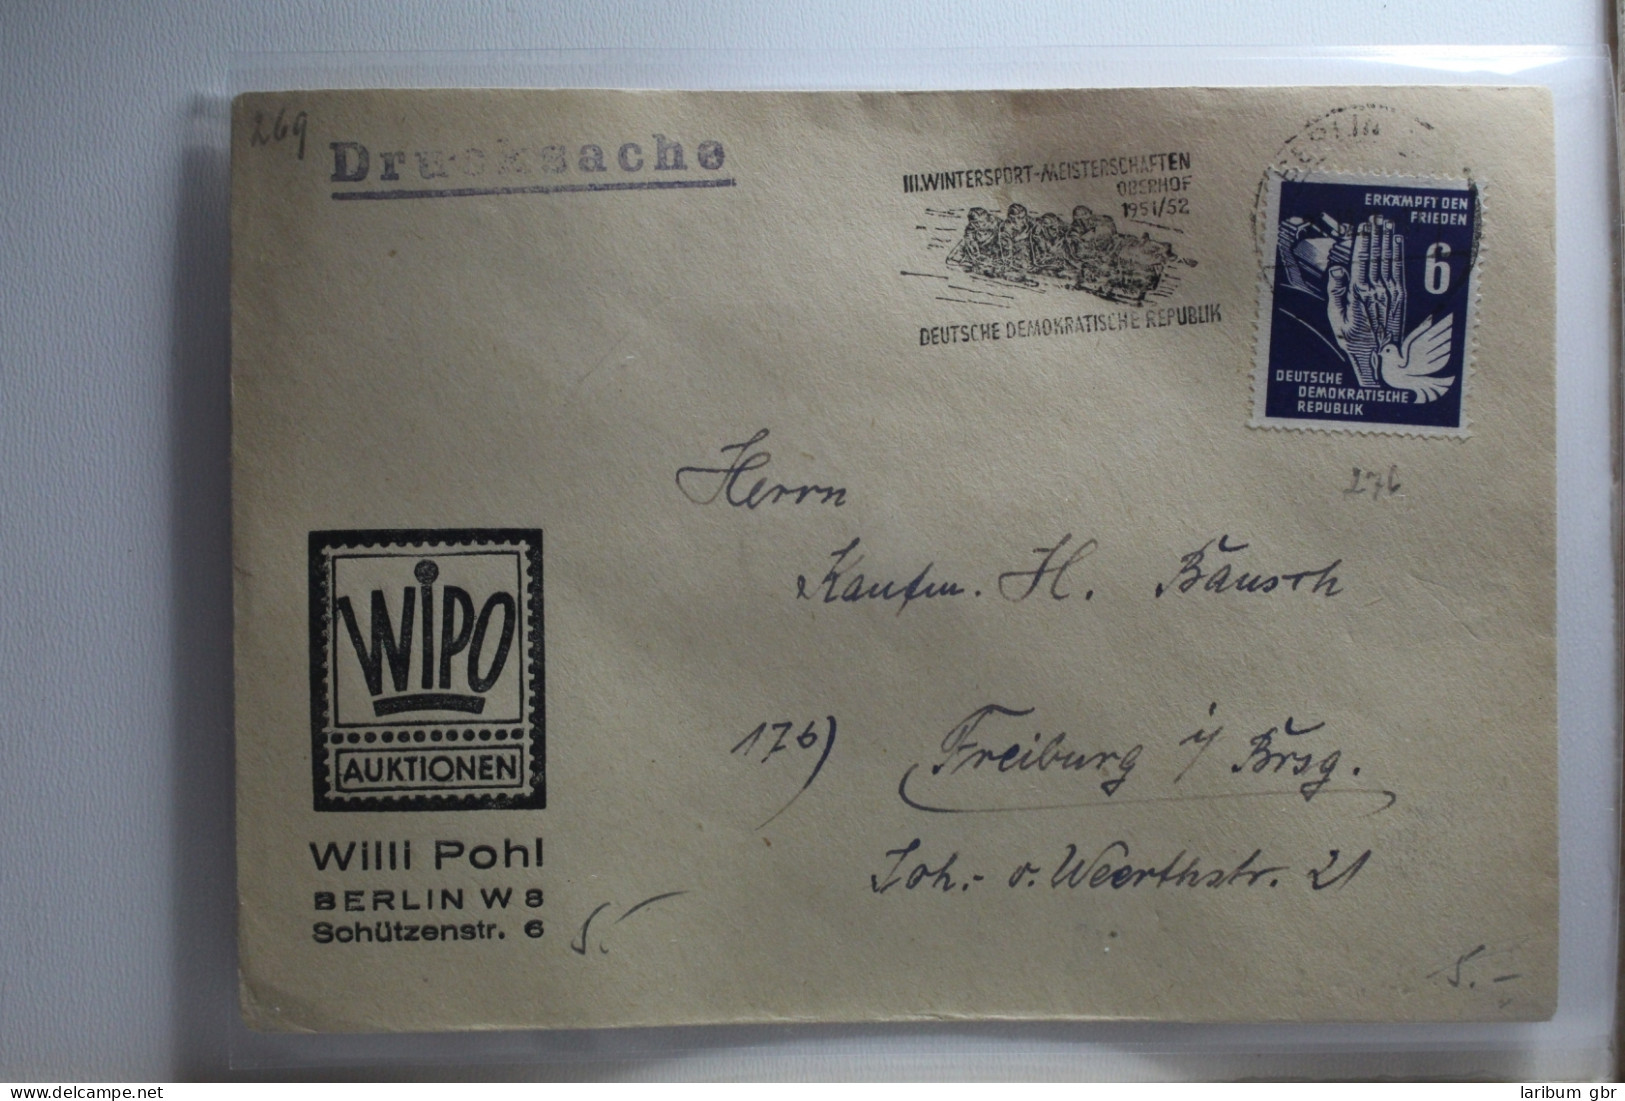 269
Drucksache
III. WINTERSPORT-MEISTERSCHAFTEN
OBERHOF
1951/52
DEUTSCHE DEMOKRATISCHE REPUBLIK
BERLIN
ERKÄMPFT DEN
FRIEDEN
6
DEUTSCHE
DEMOKRATISCHE
REPUBLIK
276
Herrn
Kaufm. H. Bausch
17b) Freiburg i/ Brsg.
Joh.- v. Weerthstr. 21
WIPO
AUKTIONEN
Willi Pohl
BERLIN W 8
Schützenstr. 6
5.-
5.-
© delcampe.net
laribum gbr